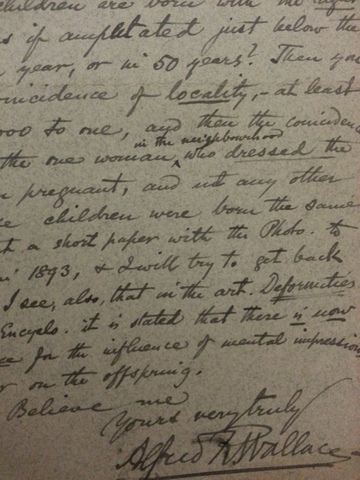 children are born with the right
s if amputated just below the
year, or in 50 years? Then you
coincidence of locality, - at least
000 to one, and then the coincidence
in the neighbourhood
the one woman ^ who dressed the
pregnant, and not any other
children were born the same
a short paper with the Photo. to
1893, & I will try to get back
I see, also, that in the art. Deformities
Encyclo. it is stated that there is now
for the influence of mental impressions
on the offspring.
Believe me
Yours very truly
Alfred R Wallace